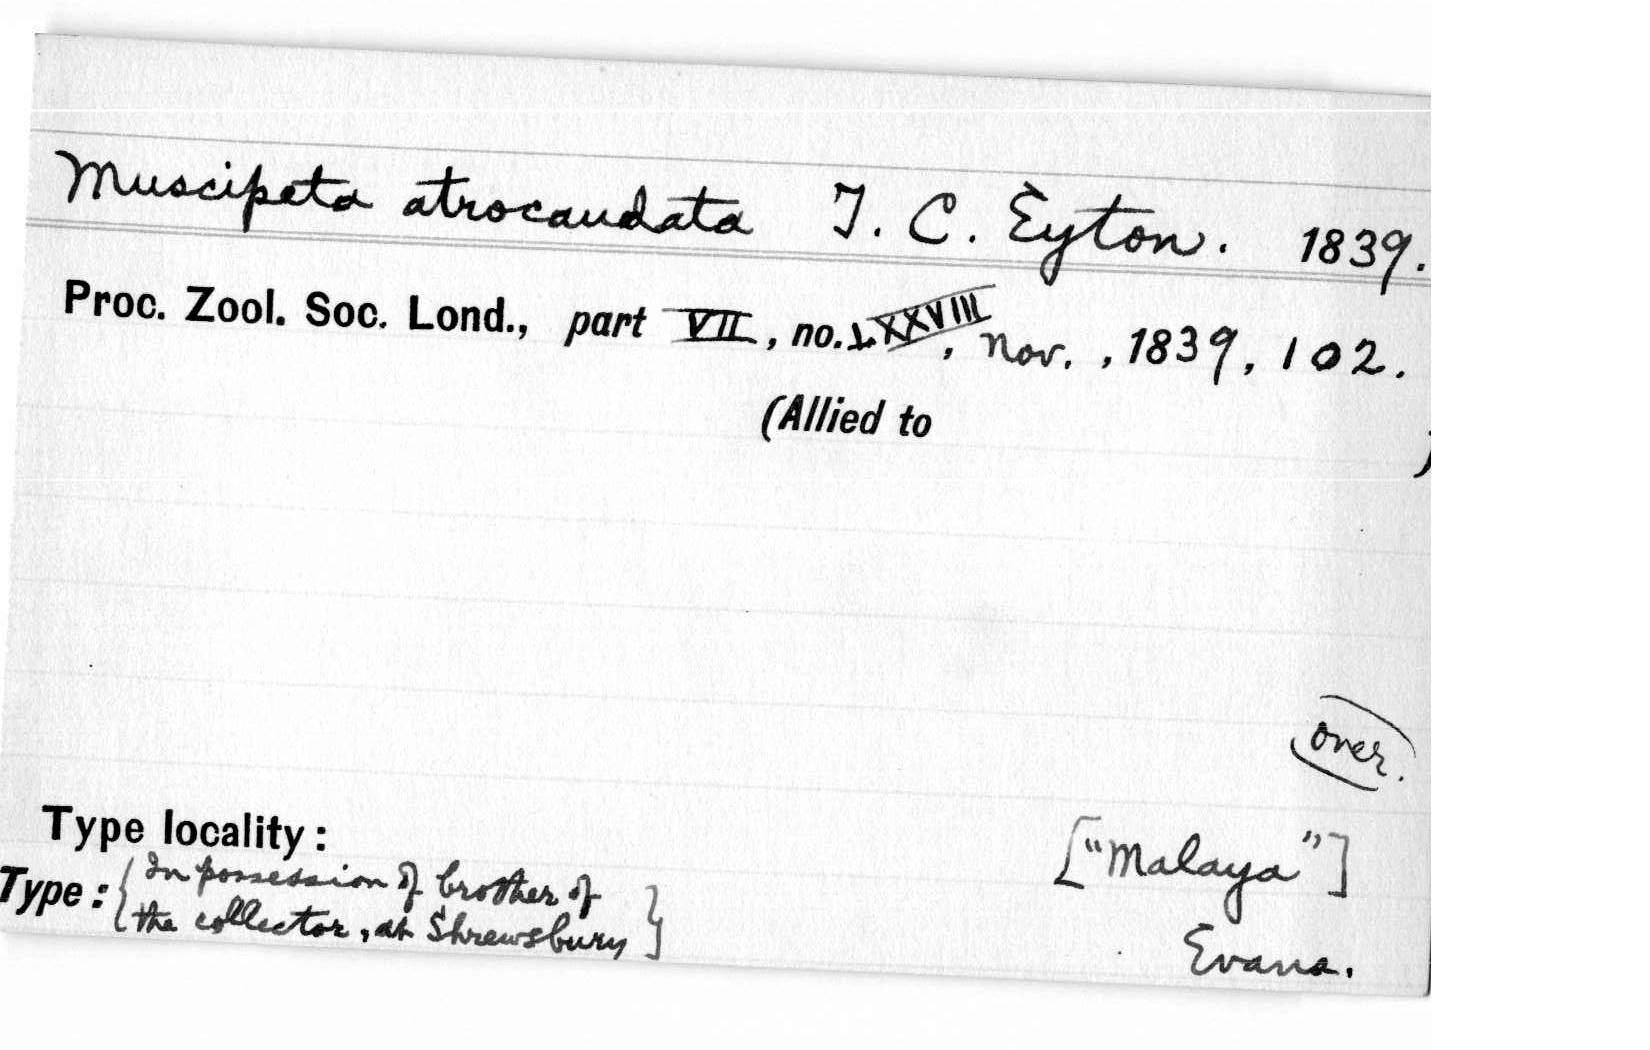 Muscipeta atrocaudata T. C. Eyton. 1839.
Proc. Zool. Soc. Lond., part VII, no. LXXVIII, Nov., 1839, 102.
(Allied to )
over.
Type locality: ["Malaya"]
Type: {In possession of brother of
the collector, at Shrewsbury}
Evans.